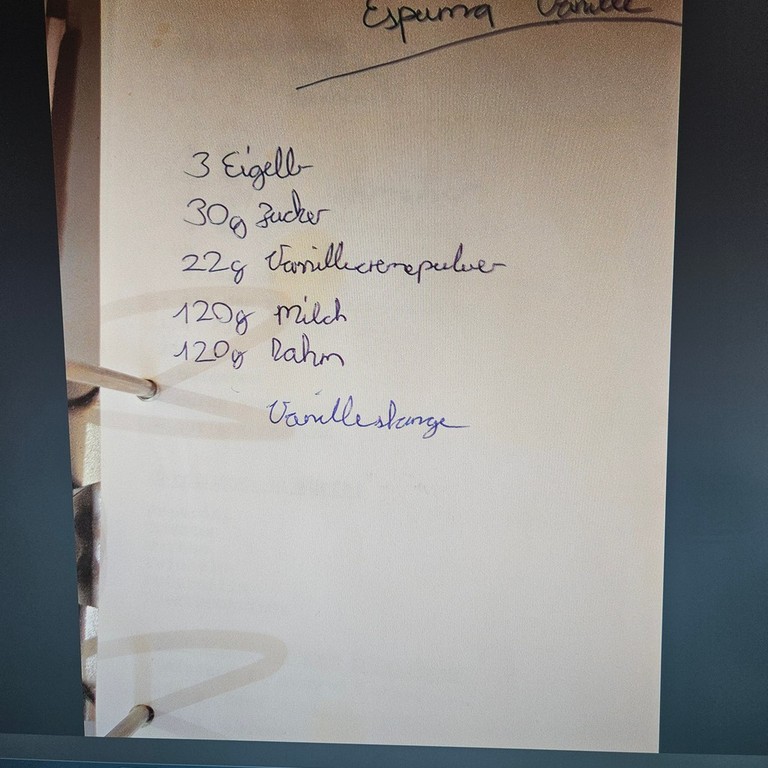 Espuma Vanille
3 Eigelb
30g Zucker
22g Vanillecremepulver
120g Milch
120g Rahm
Vanillestange